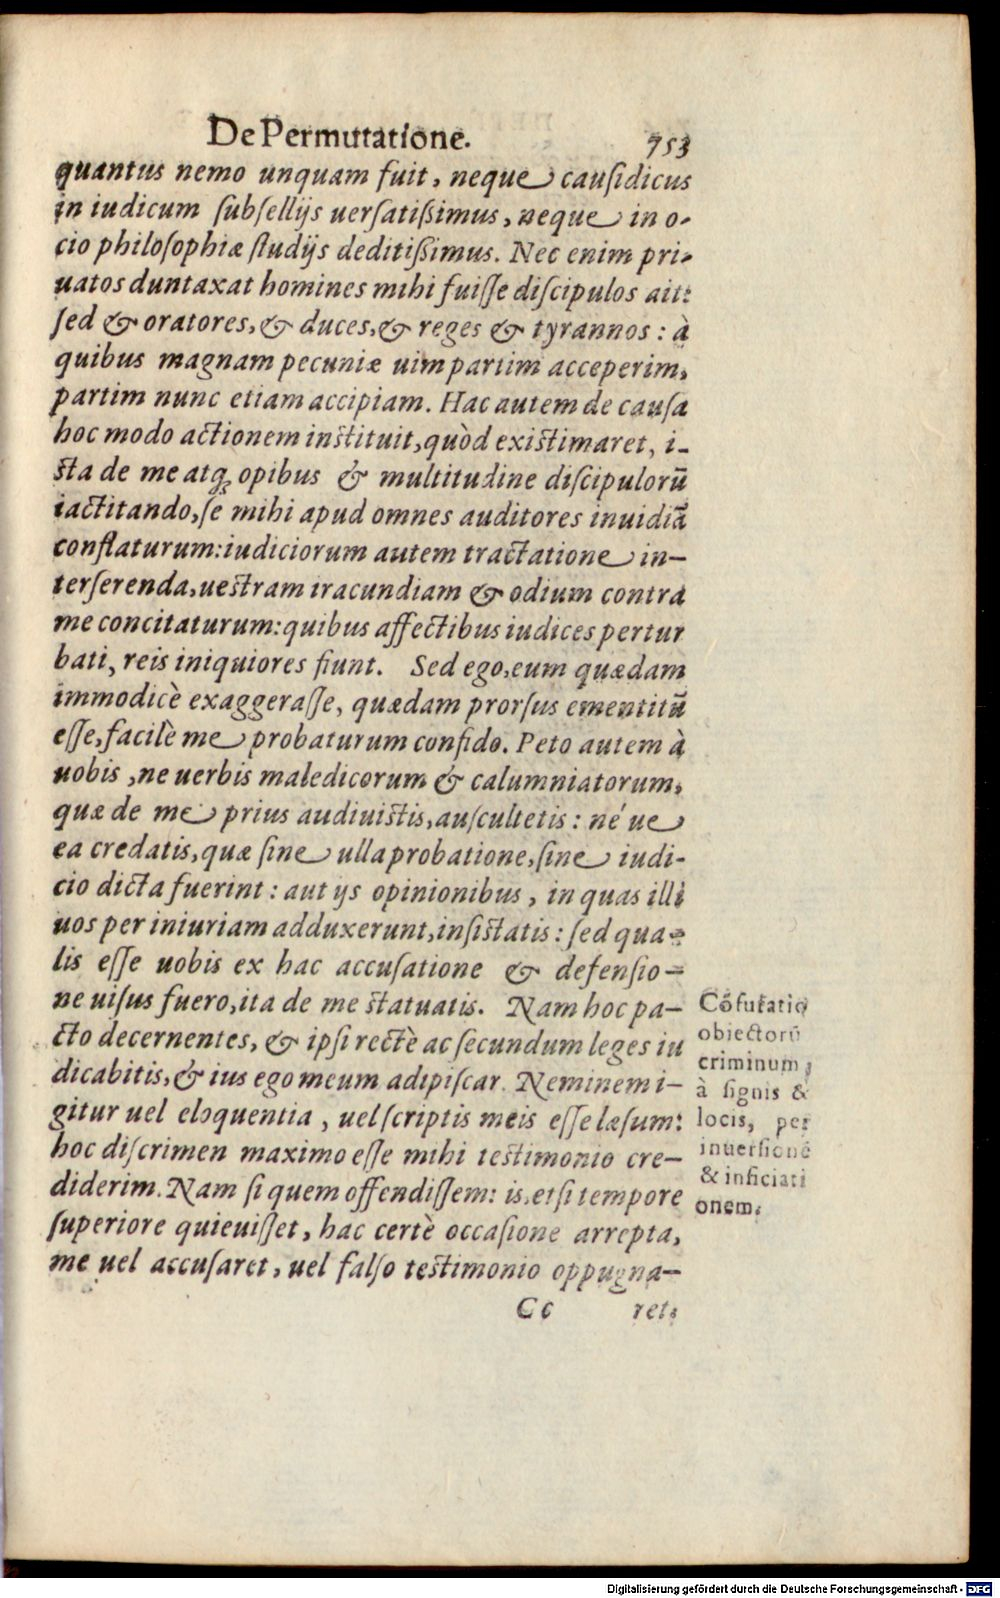 De Permutatione. 753
quantus nemo unquam fuit, neque cauſidicus
in iudicum ſubſellijs uerſatißimus, neque in o-
cio philoſophiæ ſtudijs deditißimus. Nec enim pri-
uatos duntaxat homines mihi fuiſſe diſcipulos ait:
ſed & oratores, & duces, & reges & tyrannos: à
quibus magnam pecuniæ uim partim acceperim,
partim nunc etiam accipiam. Hac autem de cauſa
hoc modo actionem inſtituit, quòd exiſtimaret, i-
ſta de me atq; opibus & multitudine diſcipulorũ
iactitando, ſe mihi apud omnes auditores inuidiã
conflaturum: iudiciorum autem tractatione in-
terſerenda, ueſtram iracundiam & odium contra
me concitaturum: quibus affectibus iudices pertur
bati, reis iniquiores fiunt. Sed ego, eum quædam
immodicè exaggeraſſe, quædam prorſus ementitũ
eſſe, facilè me probaturum confido. Peto autem à
uobis, ne uerbis maledicorum & calumniatorum,
quæ de me prius audiuiſtis, auſcultetis: né ue
ea credatis, quæ ſine ulla probatione, ſine iudi-
cio dicta fuerint: aut ijs opinionibus, in quas illi
uos per iniuriam adduxerunt, inſiſtatis: ſed qua-
lis eſſe uobis ex hac accuſatione & defenſio-
ne uiſus fuero, ita de me ſtatuatis. Nam hoc pa-
cto decernentes, & ipſi rectè ac ſecundum leges iu
dicabitis, & ius ego meum adipiſcar. Neminem i-
gitur uel eloquentia, uel ſcriptis meis eſſe læſum:
hoc diſcrimen maximo eſſe mihi teſtimonio cre-
diderim. Nam ſi quem offendiſſem: is, etſi tempore
ſuperiore quieuiſſet, hac certè occaſione arrepta,
me uel accuſaret, uel falſo teſtimonio oppugna-
Cc ret.
Cõfutatio
obiectorũ
criminum,
à ſignis &
locis, per
inuerſionẽ
& inficiati
onem.
Digitalisierung gefördert durch die Deutsche Forschungsgemeinschaft - DFG